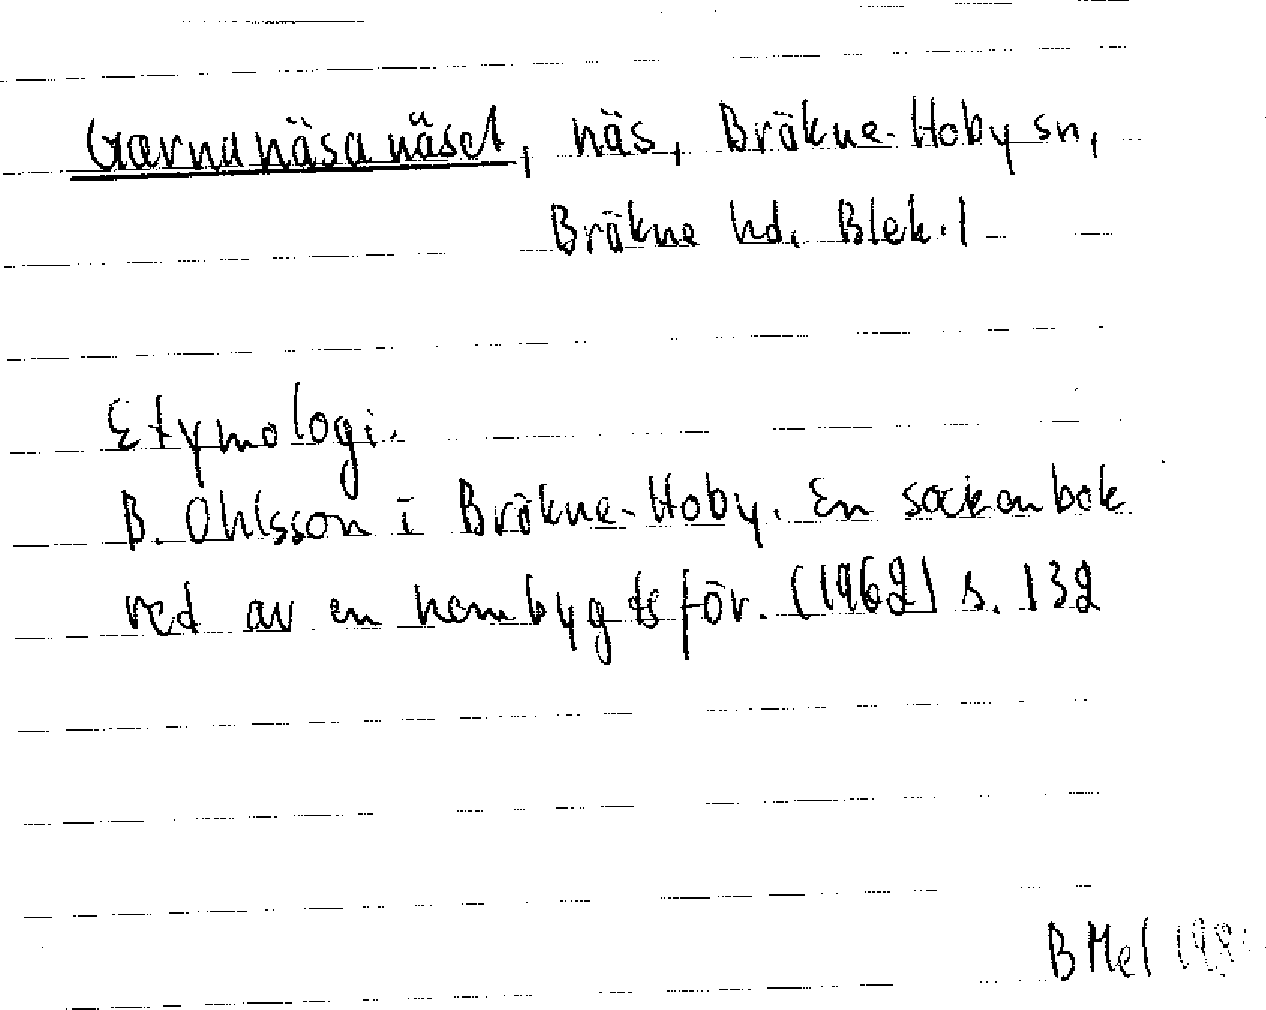 Garnanäsanäset, näs, Bräkne-Hoby sn,
Bräkne hd. Blek. l
Etymologi.
B. Ohlsson i Bräkne-Hoby. En sockenbok
red av en hembygdsför. (1962) s. 132
B Mel